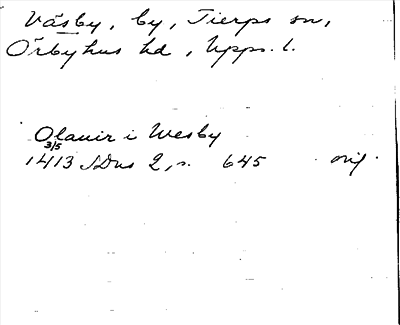 Väsby, by, Tierps sn,
Örbyhus hd, Upps. l.
Olauir i Wesby
3/5
1413 SDns 2, s. 645 orig.